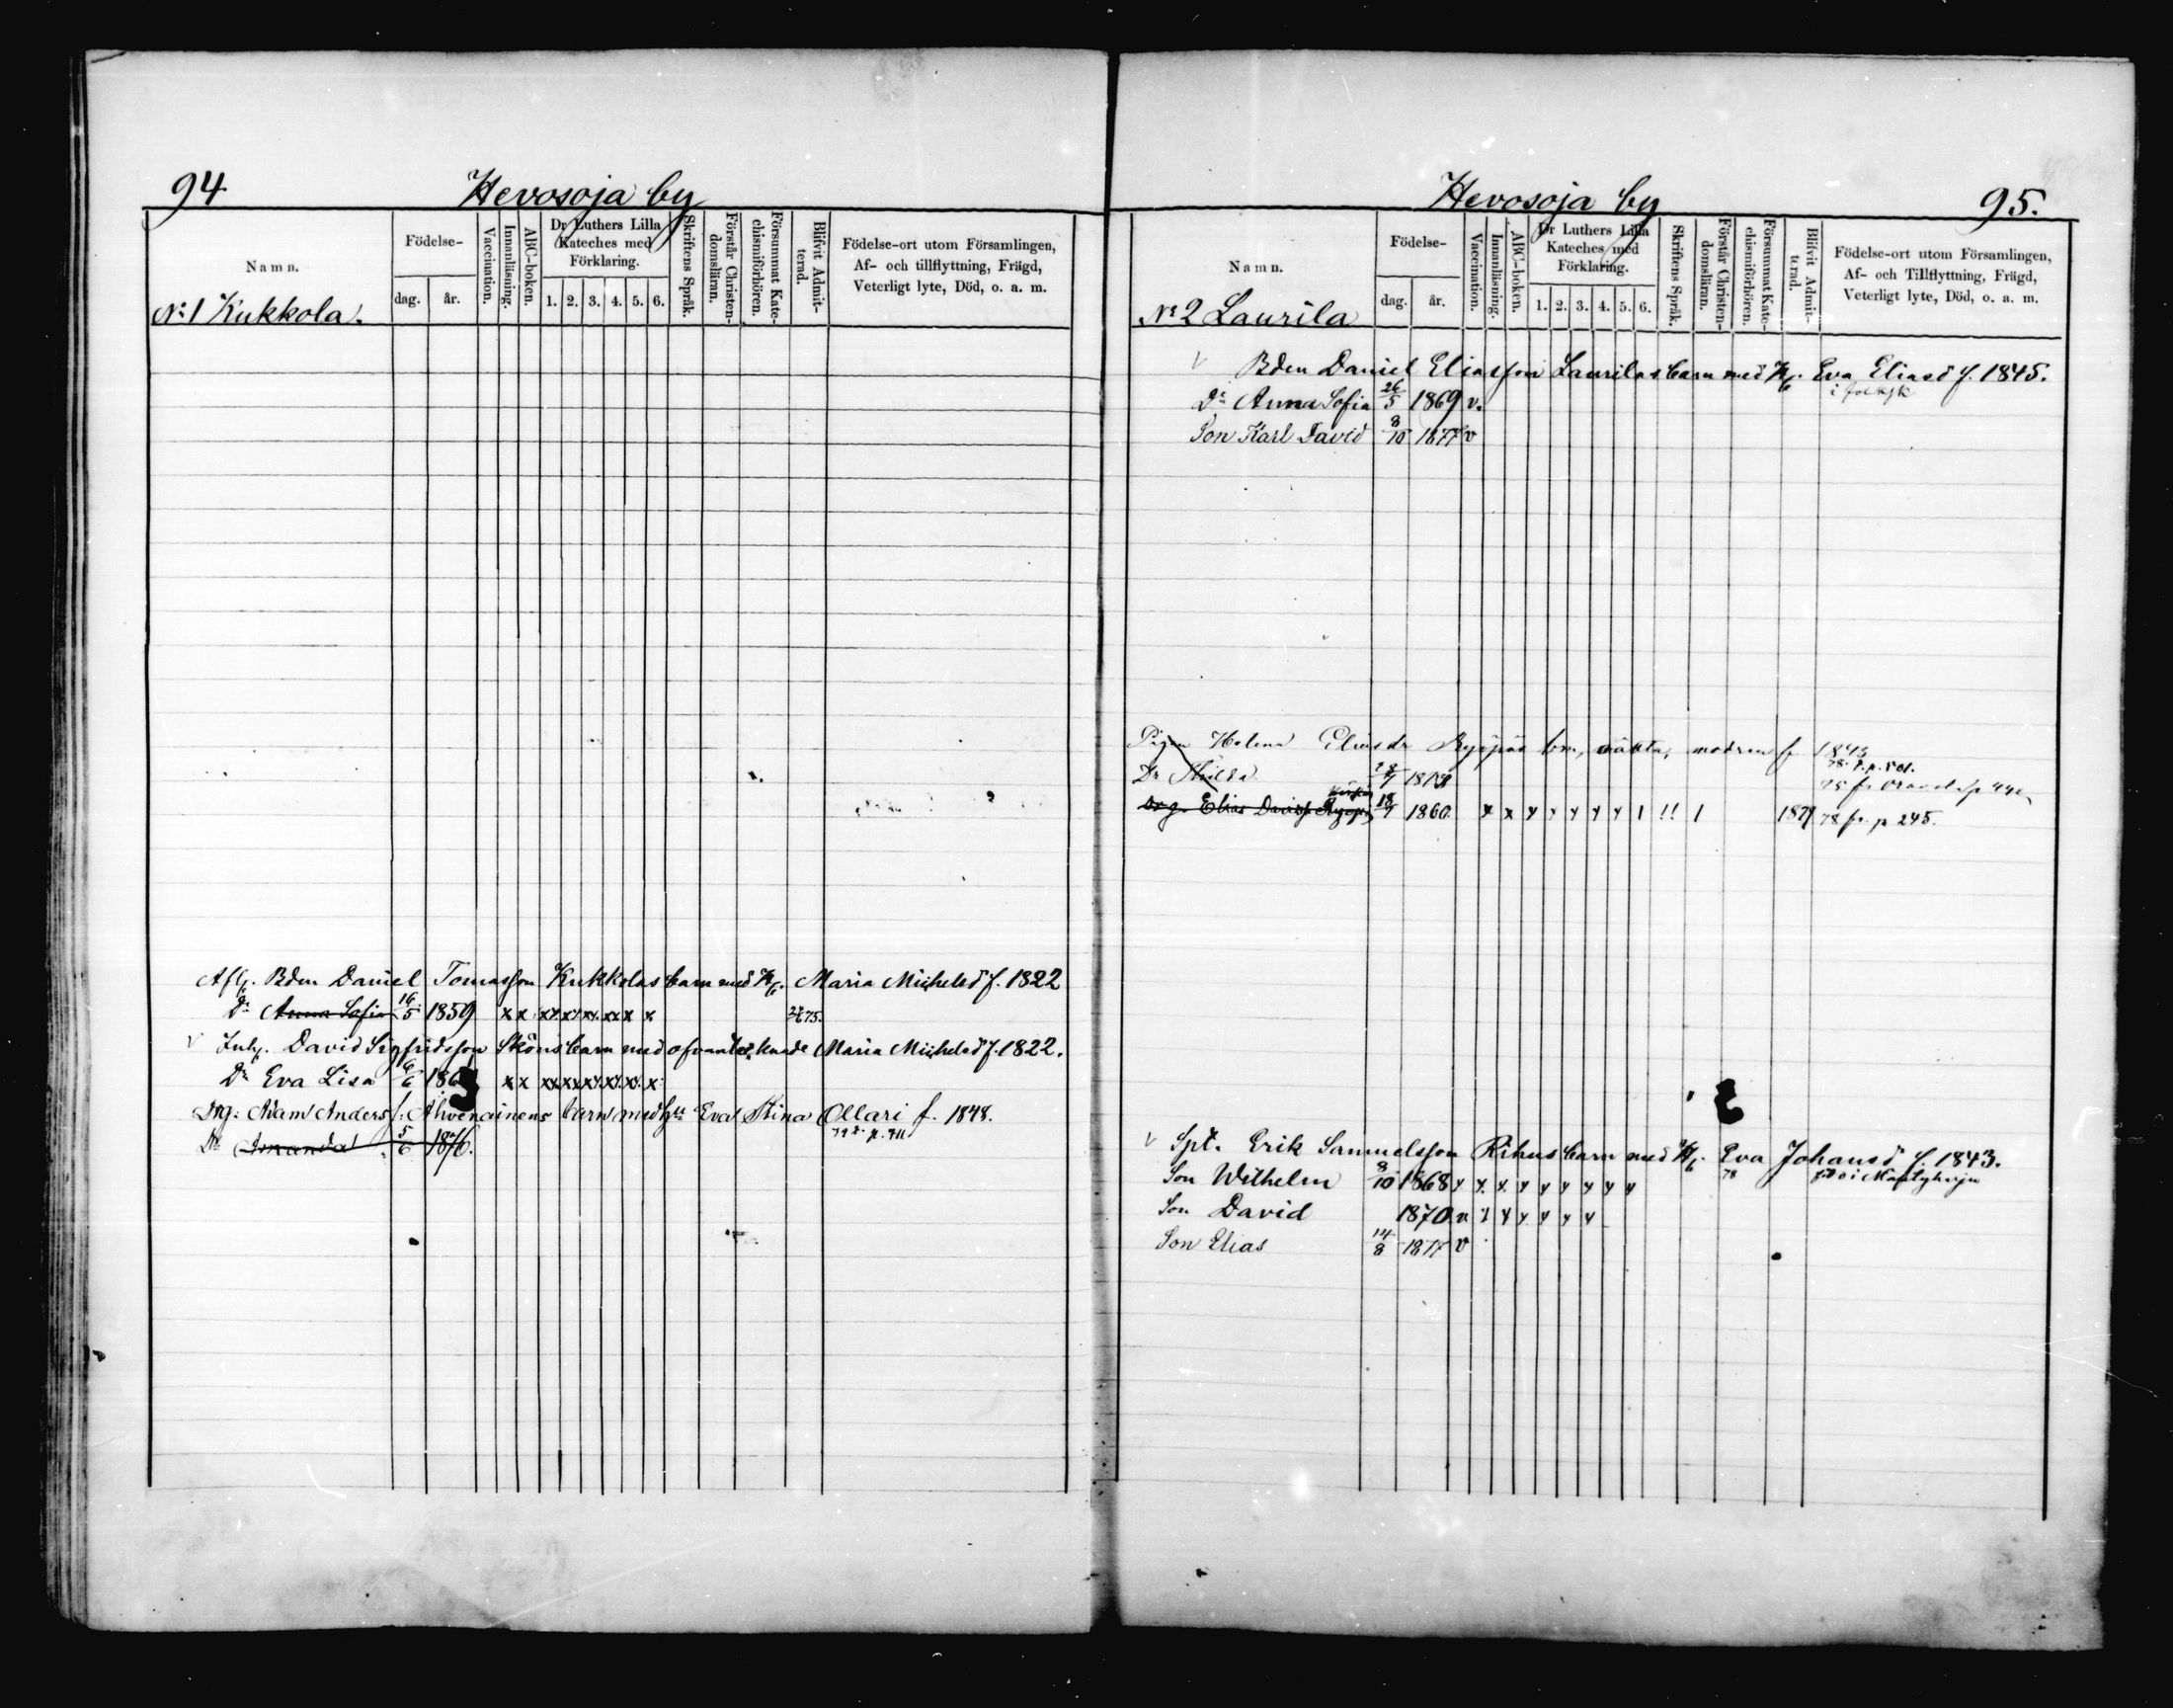 94
Hevosoja by
Namn.
Födelse-
dag. år.
Vaccination.
Innanläsning.
ABC-boken.
Dr Luthers Lilla Kateches med Förklaring.
1. 2. 3. 4. 5. 6.
Skriftens Språk.
Förstår Christendomsläran.
Försummat Katechismiförhören.
Blifvit Admitterad.
Födelse-ort utom Församlingen,
Af- och tillflyttning, Frägd,
Veterligt lyte, Död, o. a. m.
No 1 Kukkola.
Afl. Bdn Daniel Tomasson Kukkolas barn med H. Maria Michelsd f. 1822
Dr Anna Sofia 16/5 1859 x x xx. xx. xx. xx x x 75.
v Inh. David Sigfridsson Sköns barn med ofvanteknade Maria Michelsd f. 1822.
Dr Eva Lisa 1863 x x xx xx xx. xx. xx. x
Drg: Adam Anders f: Ahvenainens barn med Eva Stina Ollari f. 1848.
p. 711
Dr Amanda 5/6 1876.
Hevosoja by
95.
Namn.
Födelse-
dag. år.
Vaccination.
Innanläsning.
ABC-boken.
Dr Luthers Lilla Kateches med Förklaring.
1. 2. 3. 4. 5. 6.
Skriftens Språk.
Förstår Christendomsläran.
Försummat Katechismiförhören.
Blifvit Admitterad.
Födelse-ort utom Församlingen,
Af- och Tillflyttning, Frägd,
Veterligt lyte, Död, o. a. m.
No 2 Laurila
v Bden Daniel Eliasson Laurilas barn med H. Eva Eliasd f. 1845.
Dr Anna Sofia 26/5 1869 v.
Son Karl David 8/10 1877 v
Pigan Helena Eliasdr Ryöpää barn, oäkta, modren f 1843
Dr Hilda 1878
Drg. Elias Davidsson 18/7 1860. x x y y y y y 1 !! 1 1879 78 fr. p 245.
v Spt. Erik Samuelsson Rihus barn med H. Eva Johansd f. 1843.
78
Son Wilhelm 8/10 1868 y y. x. y y y y y y
Son David 1870 v y y y y y y
Son Elias 14/8 1877 v